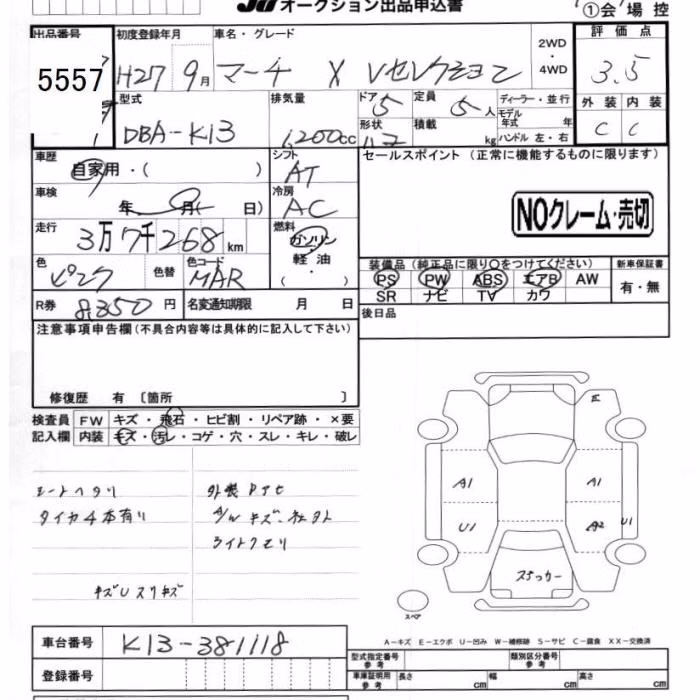 オークション出品申込書
①会場控
出品番号
5557
初度登録年月
H27 9月
車名・グレード
マーチ X Vセレクション
2WD
・
4WD
評価点
3.5
外装 内装
C C
型式
DBA-K13
排気量
1200cc
ドア 5
形状
定員 5人
積載 kg
ディーラー・並行
モデル年式 年
ハンドル 左・右
車歴
自家用・( )
シフト
AT
セールスポイント(正常に機能するものに限ります)
車検
年 月( 日)
冷房
AC
NOクレーム・売切
走行
3万7千268km
燃料
ガソリン
・
軽油
・
( )
色
ピンク
色替
色コード
MAR
装備品(純正品に限り○をつけてください)
PS PW ABS エアB AW
SR ナビ TV カワ
新車保証書
有・無
R券 8,350円
名変通知期限 月 日
後日品
注意事項申告欄(不具合内容等は具体的に記入して下さい)
修復歴 有 [箇所 ]
検査員記入欄
FW キズ・飛石・ヒビ割・リペア跡・×要
内装 キズ・汚レ・コゲ・穴・スレ・キレ・破レ
シートヘタリ
タイヤ4本有り
外装
A/W キズ・社外
ライトクモリ
キズUスリキズ
E
A1 A1
U1 A2 U1
ステッカー
スペア
A-キズ E-エクボ U-凹み W-補修跡 S-サビ C-腐食 XX-交換済
車台番号 K13-381118
登録番号
型式指定番号
参考
類別区分番号
参考
車庫証明用
参考
長さ cm 幅 cm 高さ cm